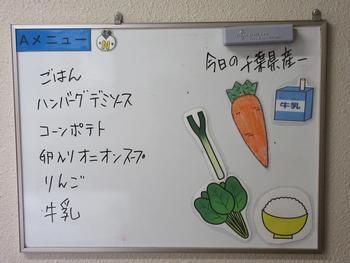 Aメニュー
今日の千葉県産
ごはん
ハンバーグデミソース
コーンポテト
卵入りオニオンスープ
りんご
牛乳
牛乳